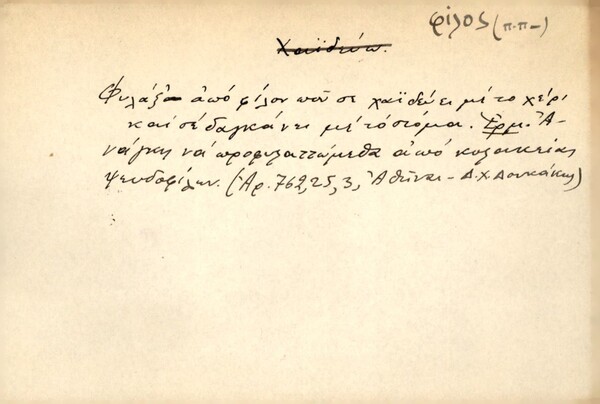 φίλος (π.π-)
Χαϊδεύω.
Φυλάξου από φίλον που σε χαϊδεύει μέ το χέρι
και σέ δαγκάνει μέ τό στόμα. Ἑρμ. Ἀ-
νάγκη νά προφυλαττώμεθα ἀπό κολακείας
ψευδοφίλων. (Ἀρ. 762, 25, 3, Ἀθῆναι - Δ. Χ. Δουκάκης)